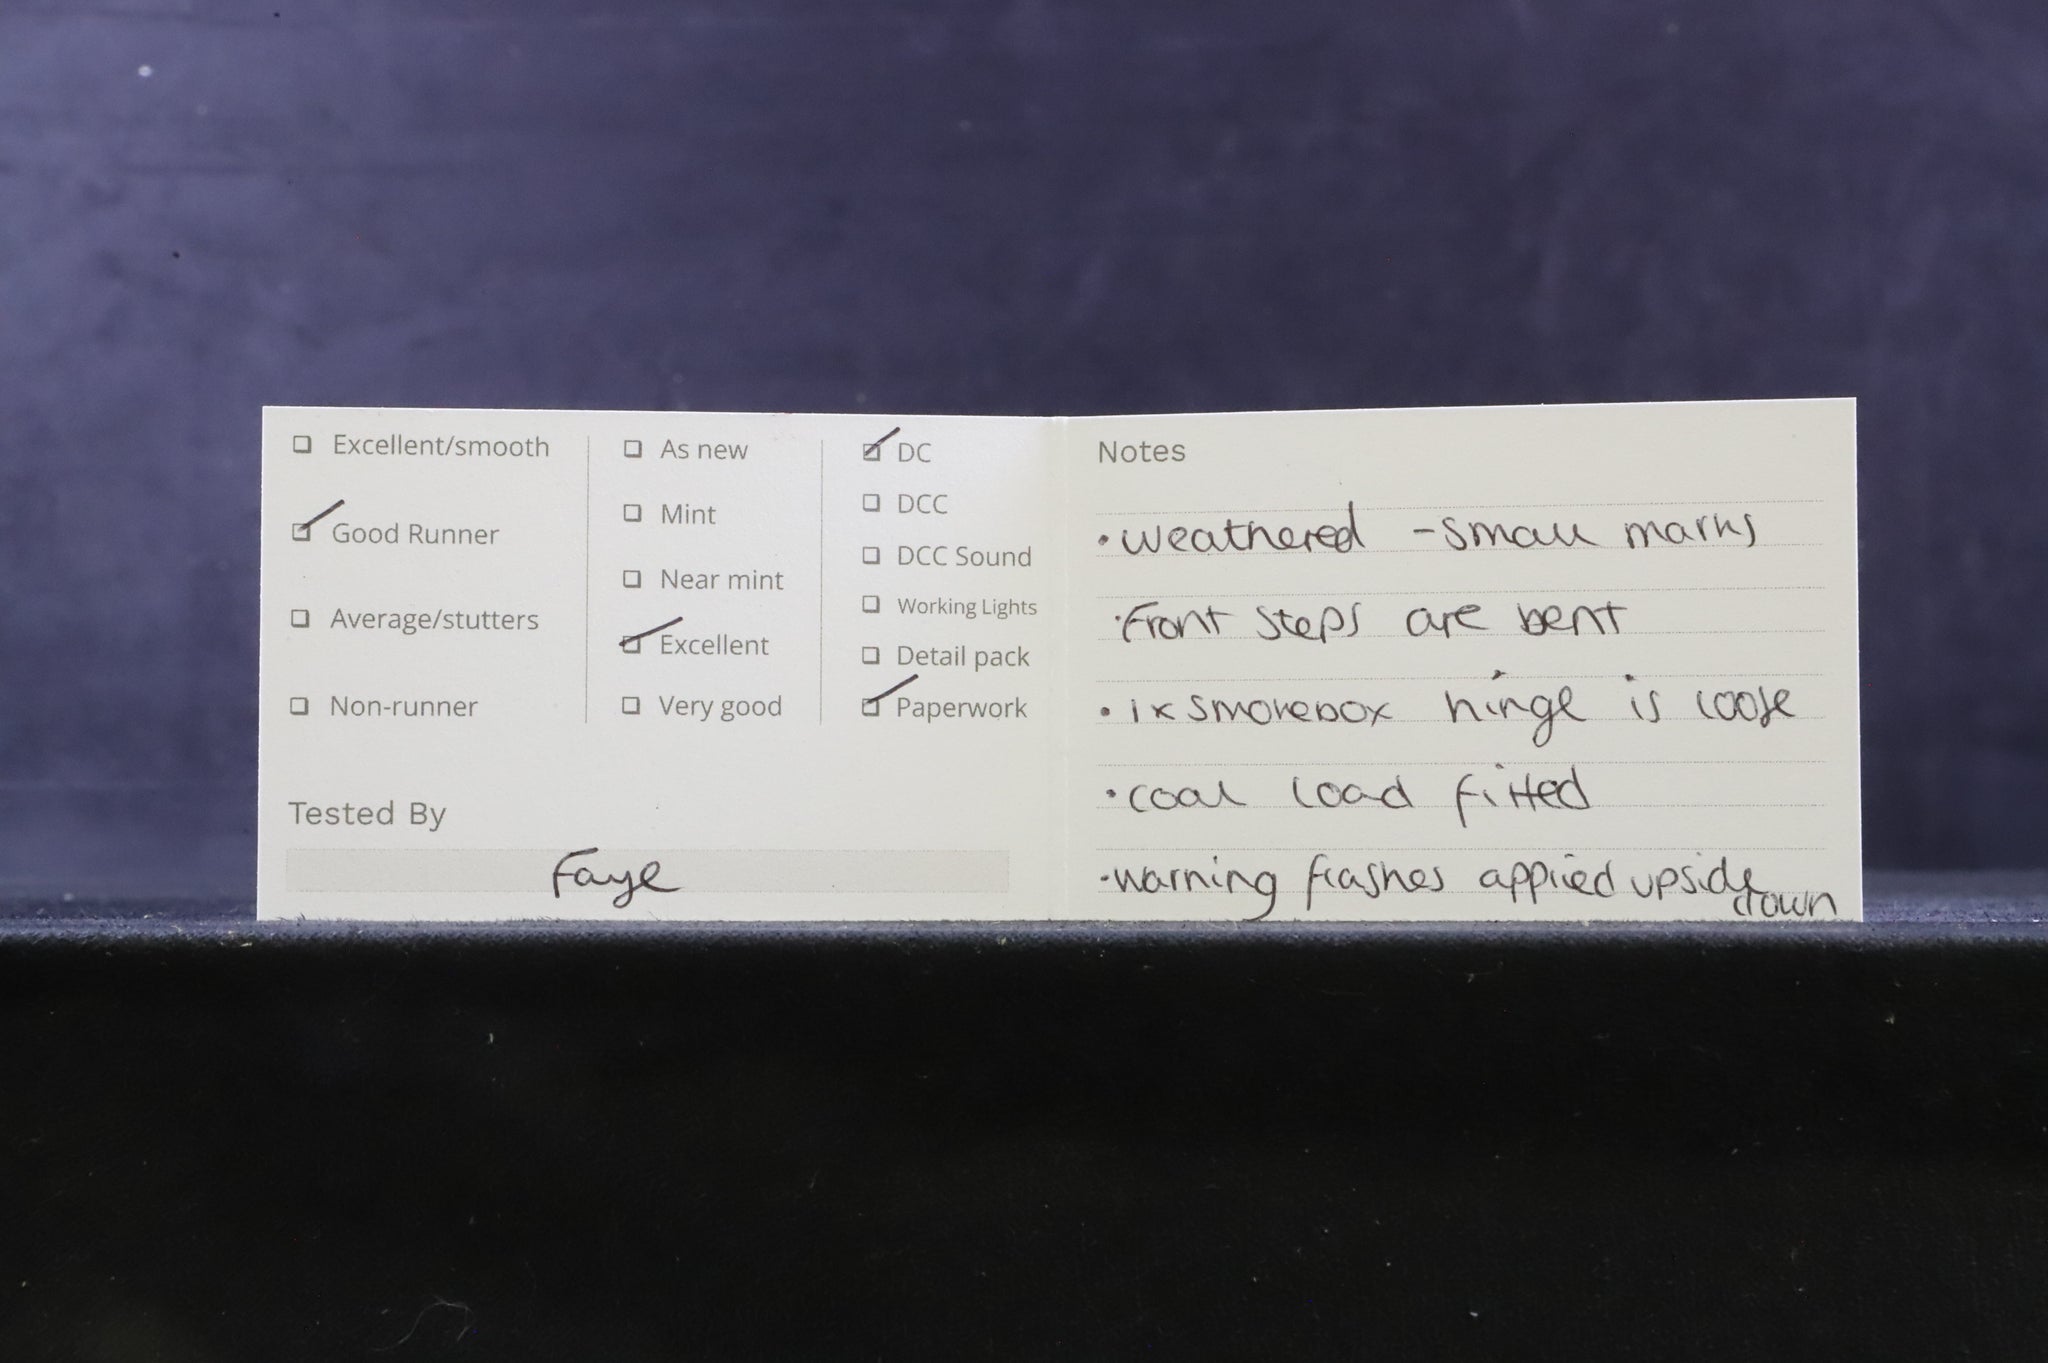 Excellent/smooth
Good Runner
Average/stutters
Non-runner
As new
Mint
Near mint
Excellent
Very good
DC
DCC
DCC Sound
Working Lights
Detail pack
Paperwork
Tested By
Faye
Notes
• weathered - small marks
• Front steps are bent
• 1x smokebox hinge is loose
• coal load fitted
• warning flashes applied upside
down